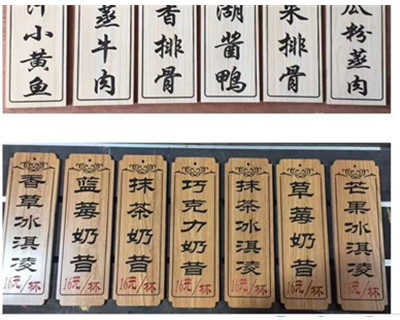 汁小黄鱼
蒸牛肉
香排骨
湖酱鸭
排骨
瓜粉蒸肉
香草冰淇凌
16元/杯
蓝莓奶昔
16元/杯
抹茶奶昔
16元/杯
巧克力奶昔
16元/杯
抹茶冰淇凌
16元/杯
草莓奶昔
16元/杯
芒果冰淇凌
16元/杯